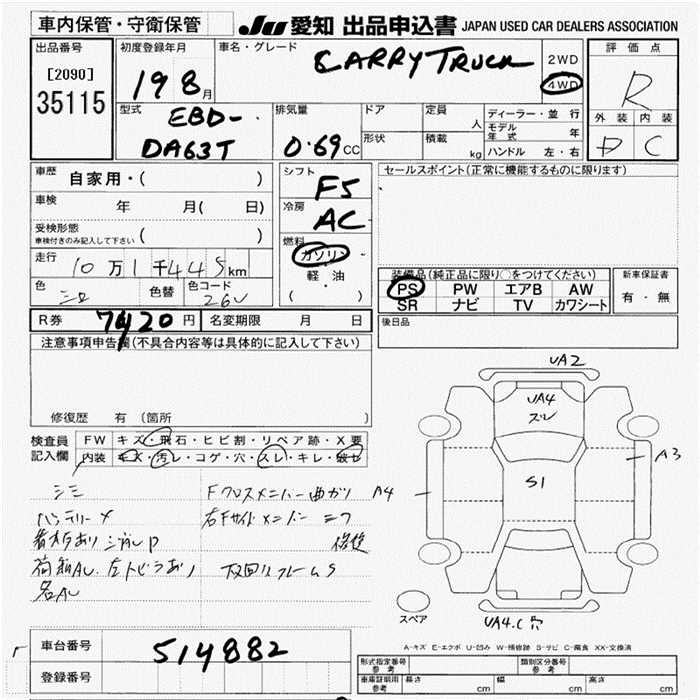 車内保管・守衛保管
JU 愛知 出品申込書 JAPAN USED CAR DEALERS ASSOCIATION
出品番号
[2090]
35115
初度登録年月
19 8月
車名・グレード
CARRY TRUCK
2WD
4WD
評価点
R
外装 内装
D C
型式
EBD-
DA63T
排気量
0.69cc
ドア
形状
定員
人
積載
kg
ディーラー・並行
モデル年式 年
ハンドル 左・右
車歴 自家用・( )
車検 年 月( 日)
受検形態
車検付きのみ記入して下さい ( )
走行 10万1千445km
色
色替
色コード
26U
シフト
F5
冷房
AC
燃料
ガソリン
軽・油
( ・ )
セールスポイント(正常に機能するものに限ります)
装備品(純正品に限り○をつけてください)
PS PW エアB AW
SR ナビ TV カワシート
新車保証書
有・無
後日品
R券 7420円 名変期限 月 日
注意事項申告欄(不具合内容等は具体的に記入して下さい)
修復歴 有 (箇所
検査員
記入欄
FW キズ・飛石・ヒビ割・リペア跡・X要
内装 キズ・汚レ・コゲ・穴・スレ・キレ・破セ
シミ Fクロスメンバー曲ガリ
バッテリーメ 右Fサイドメンバー
修復
UA2
UA4
スレ
A4
S1
A3
UA4.C穴
スペア
A-キズ E-エクボ U-凹み W-補修跡 S-サビ C-腐食 XX-交換済
車台番号 514882
登録番号
形式指定番号
参考
類別区分番号
参考
車庫証明用
参考
長さ cm 幅 cm 高さ cm